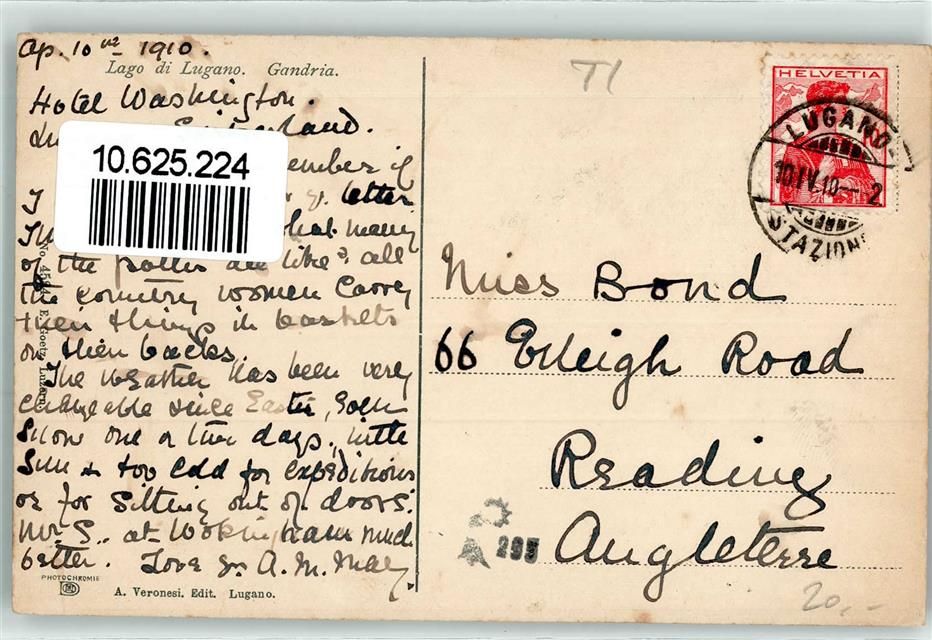 Ap. 10th 1910.
Lago di Lugano. Gandria.
T1
HELVETIA
LUGANO
10.IV.10– 2
STAZIONE
Hotel Washington.
10.625.224
I letter
what many
of the paths are like & all
the country women carry
their things in baskets
on their backs.
The weather has been very
changeable since Easter,
Snow one or two days, little
Sun & too cold for expeditions
or for sitting out of doors.
Mr S.. at Wokingham much
better. Love yr A. M. May
No. 4584 E. Goetz Luzern
Miss Bond
66 Erleigh Road
Reading
Angleterre
295
PHOTOCHROMIE
A. Veronesi. Edit. Lugano.
20,-